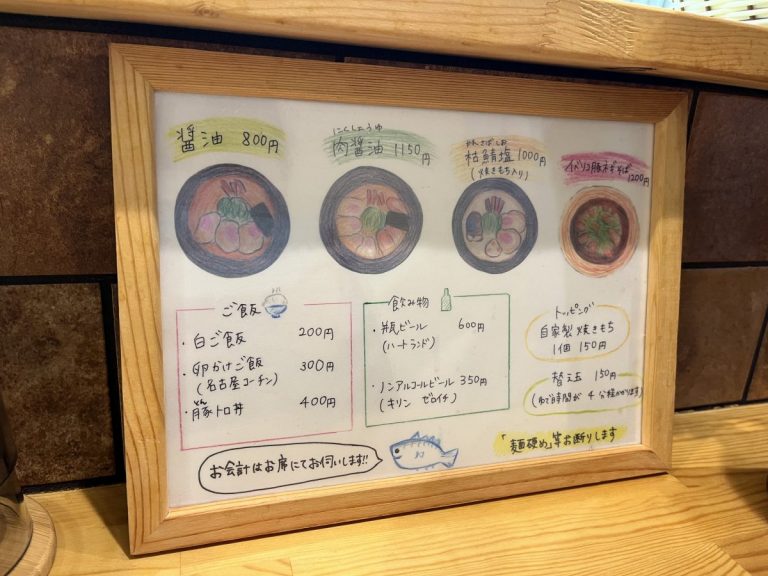 醤油 800円
にくしょうゆ
肉醤油 1150円
かれさばしお
枯鯖塩 1000円
(焼きもち入り)
イベリコ豚ネギそば
1200円
ご飯
・白ご飯 200円
・卵かけご飯 300円
(名古屋コーチン)
・豚トロ丼 400円
飲み物
・瓶ビール 600円
(ハートランド)
・ノンアルコールビール 350円
(キリン ゼロイチ)
トッピング
自家製焼きもち
1個 150円
替え玉 150円
(ゆで時間が4分程かかります)
「麺硬め」等お断りします
お会計はお席にてお伺いします!!